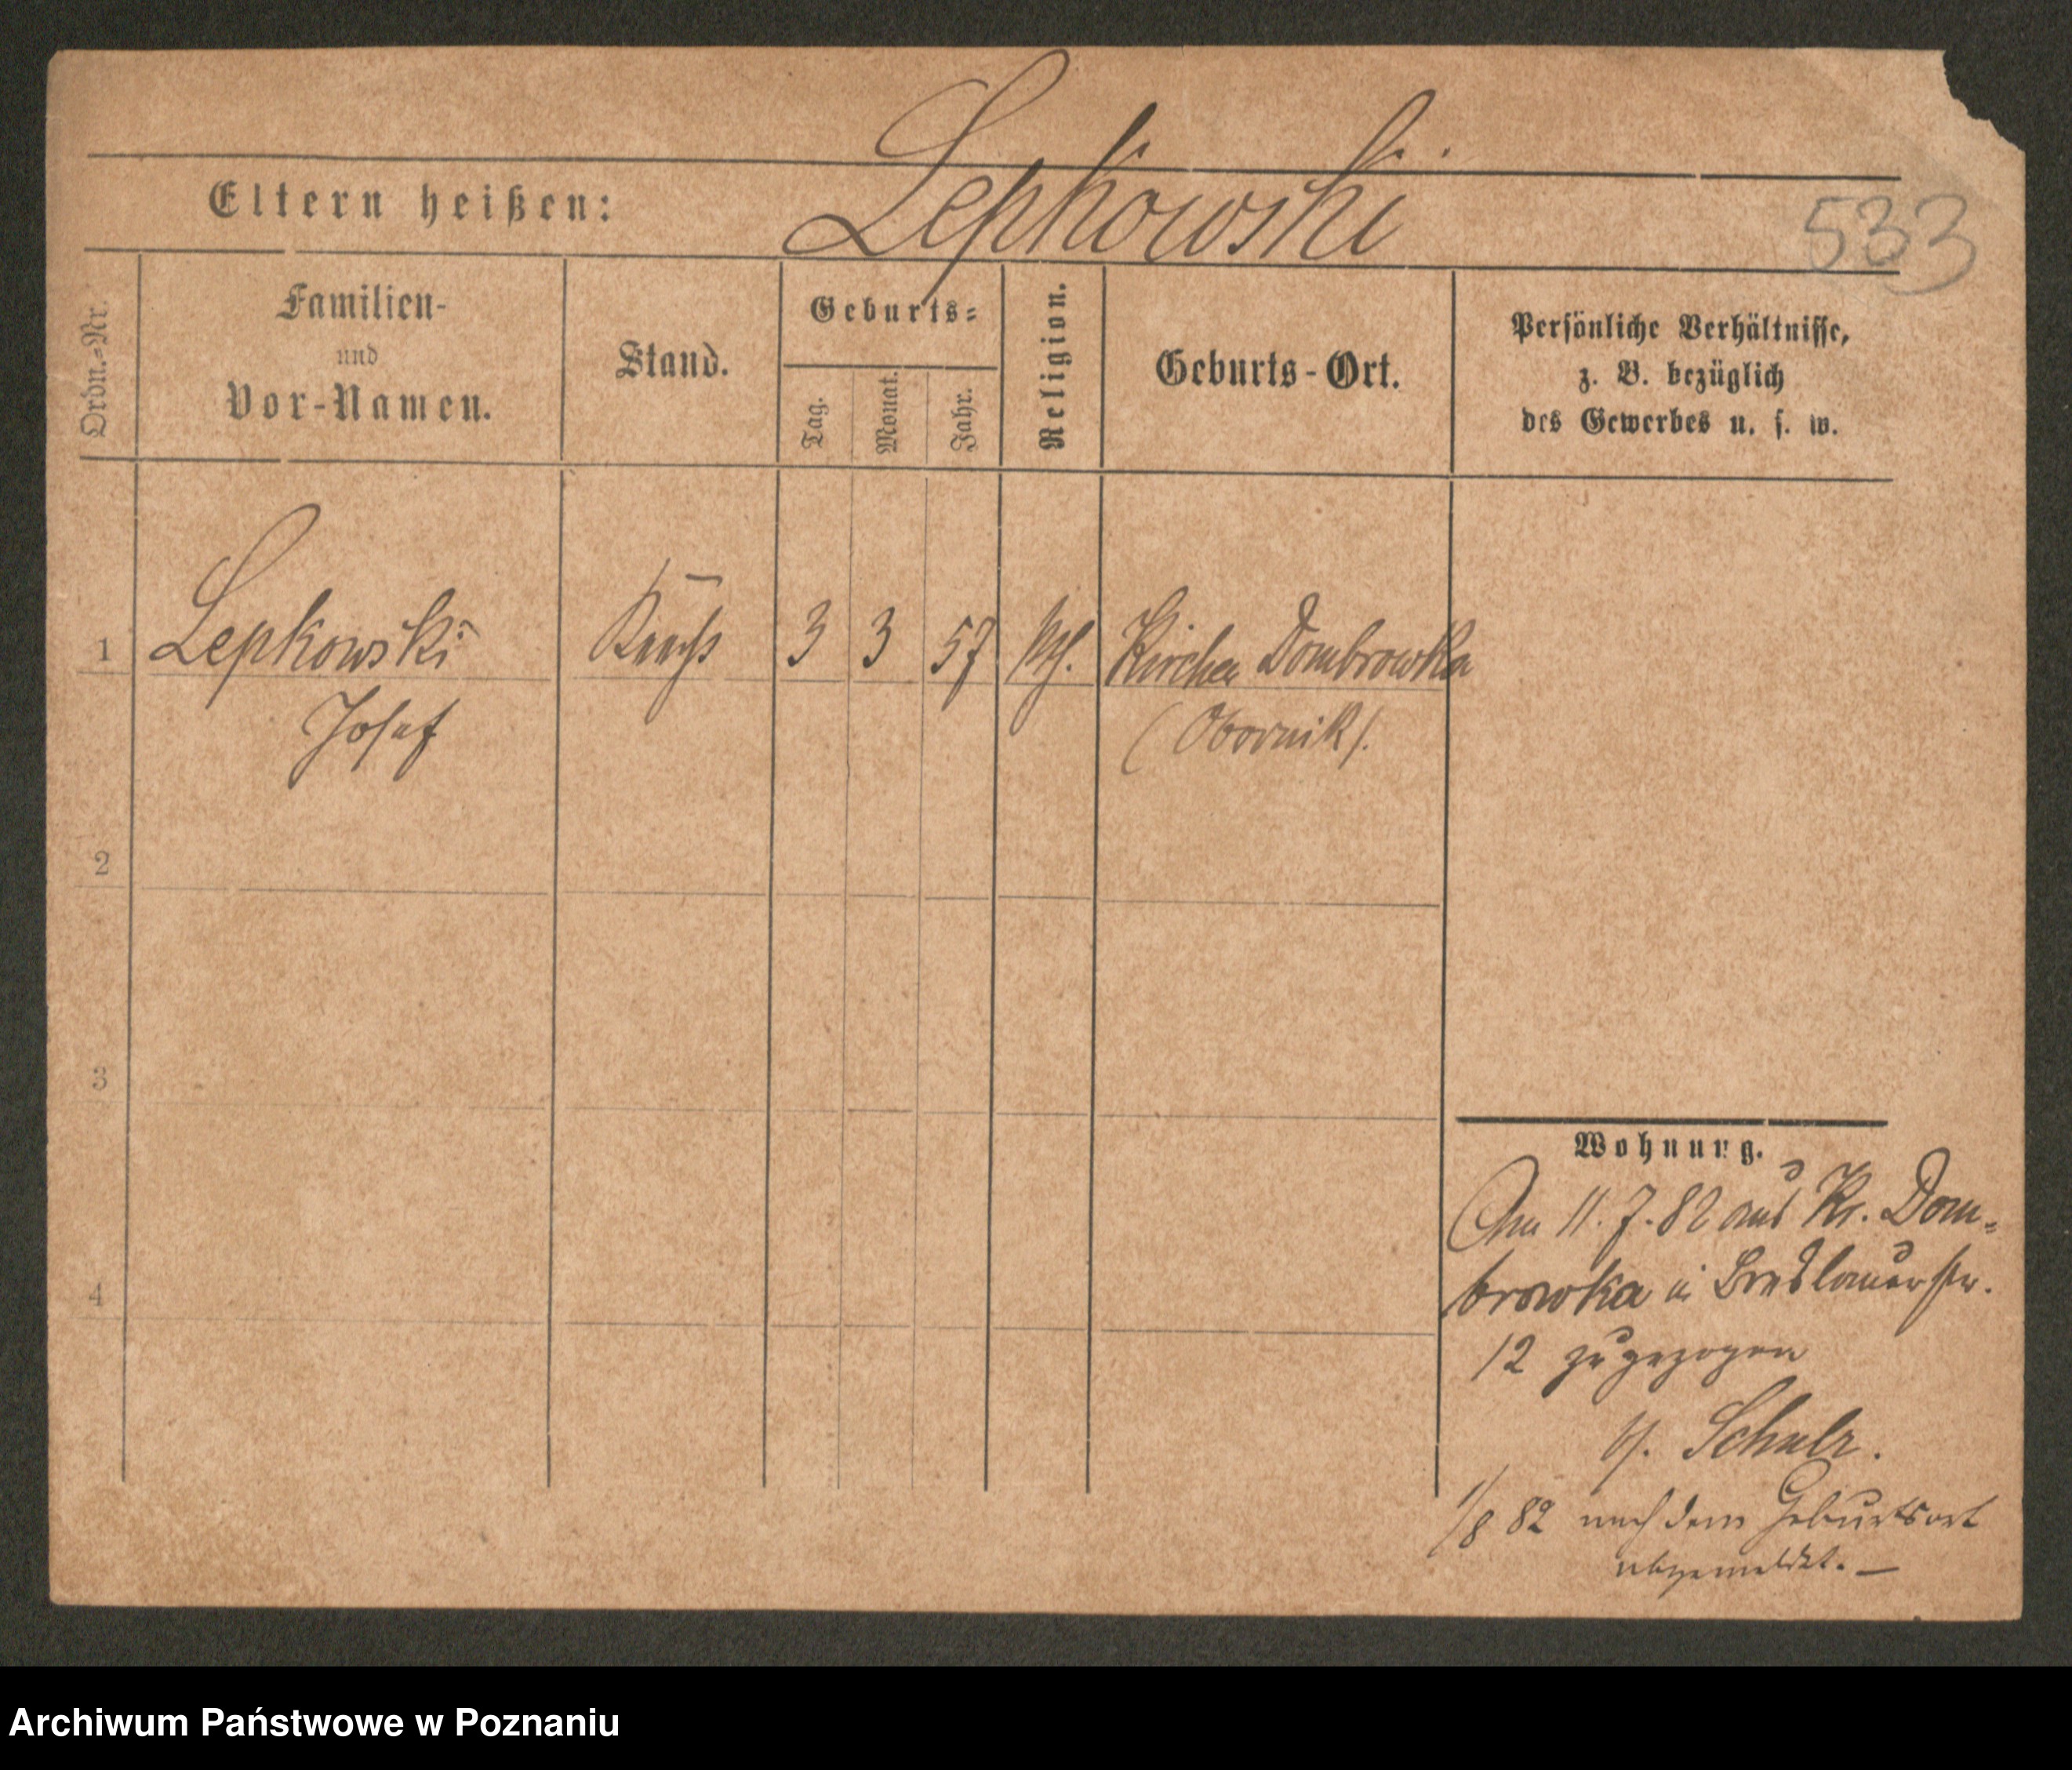 Lepkowski
Eltern heißen:
533
Ordn.=Nr.
Familien-
und
Vor-Namen.
Stand.
Geburts=
Tag.
Monat.
Jahr.
Religion.
Geburts-Ort.
Persönliche Verhältnisse,
z. B. bezüglich
des Gewerbes u. s. w.
1 Lepkowski 3 3 57 Kirchen Dombrowka
Josef (Obornik).
2
3
4
Wohnung.
Am 11.7.82 aus Kr. Dom=
browka in Breslauerstr.
12 zugezogen
Schulz.
1/8 82 nach dem Geburtsort
abgemeldet. —
Archiwum Państwowe w Poznaniu